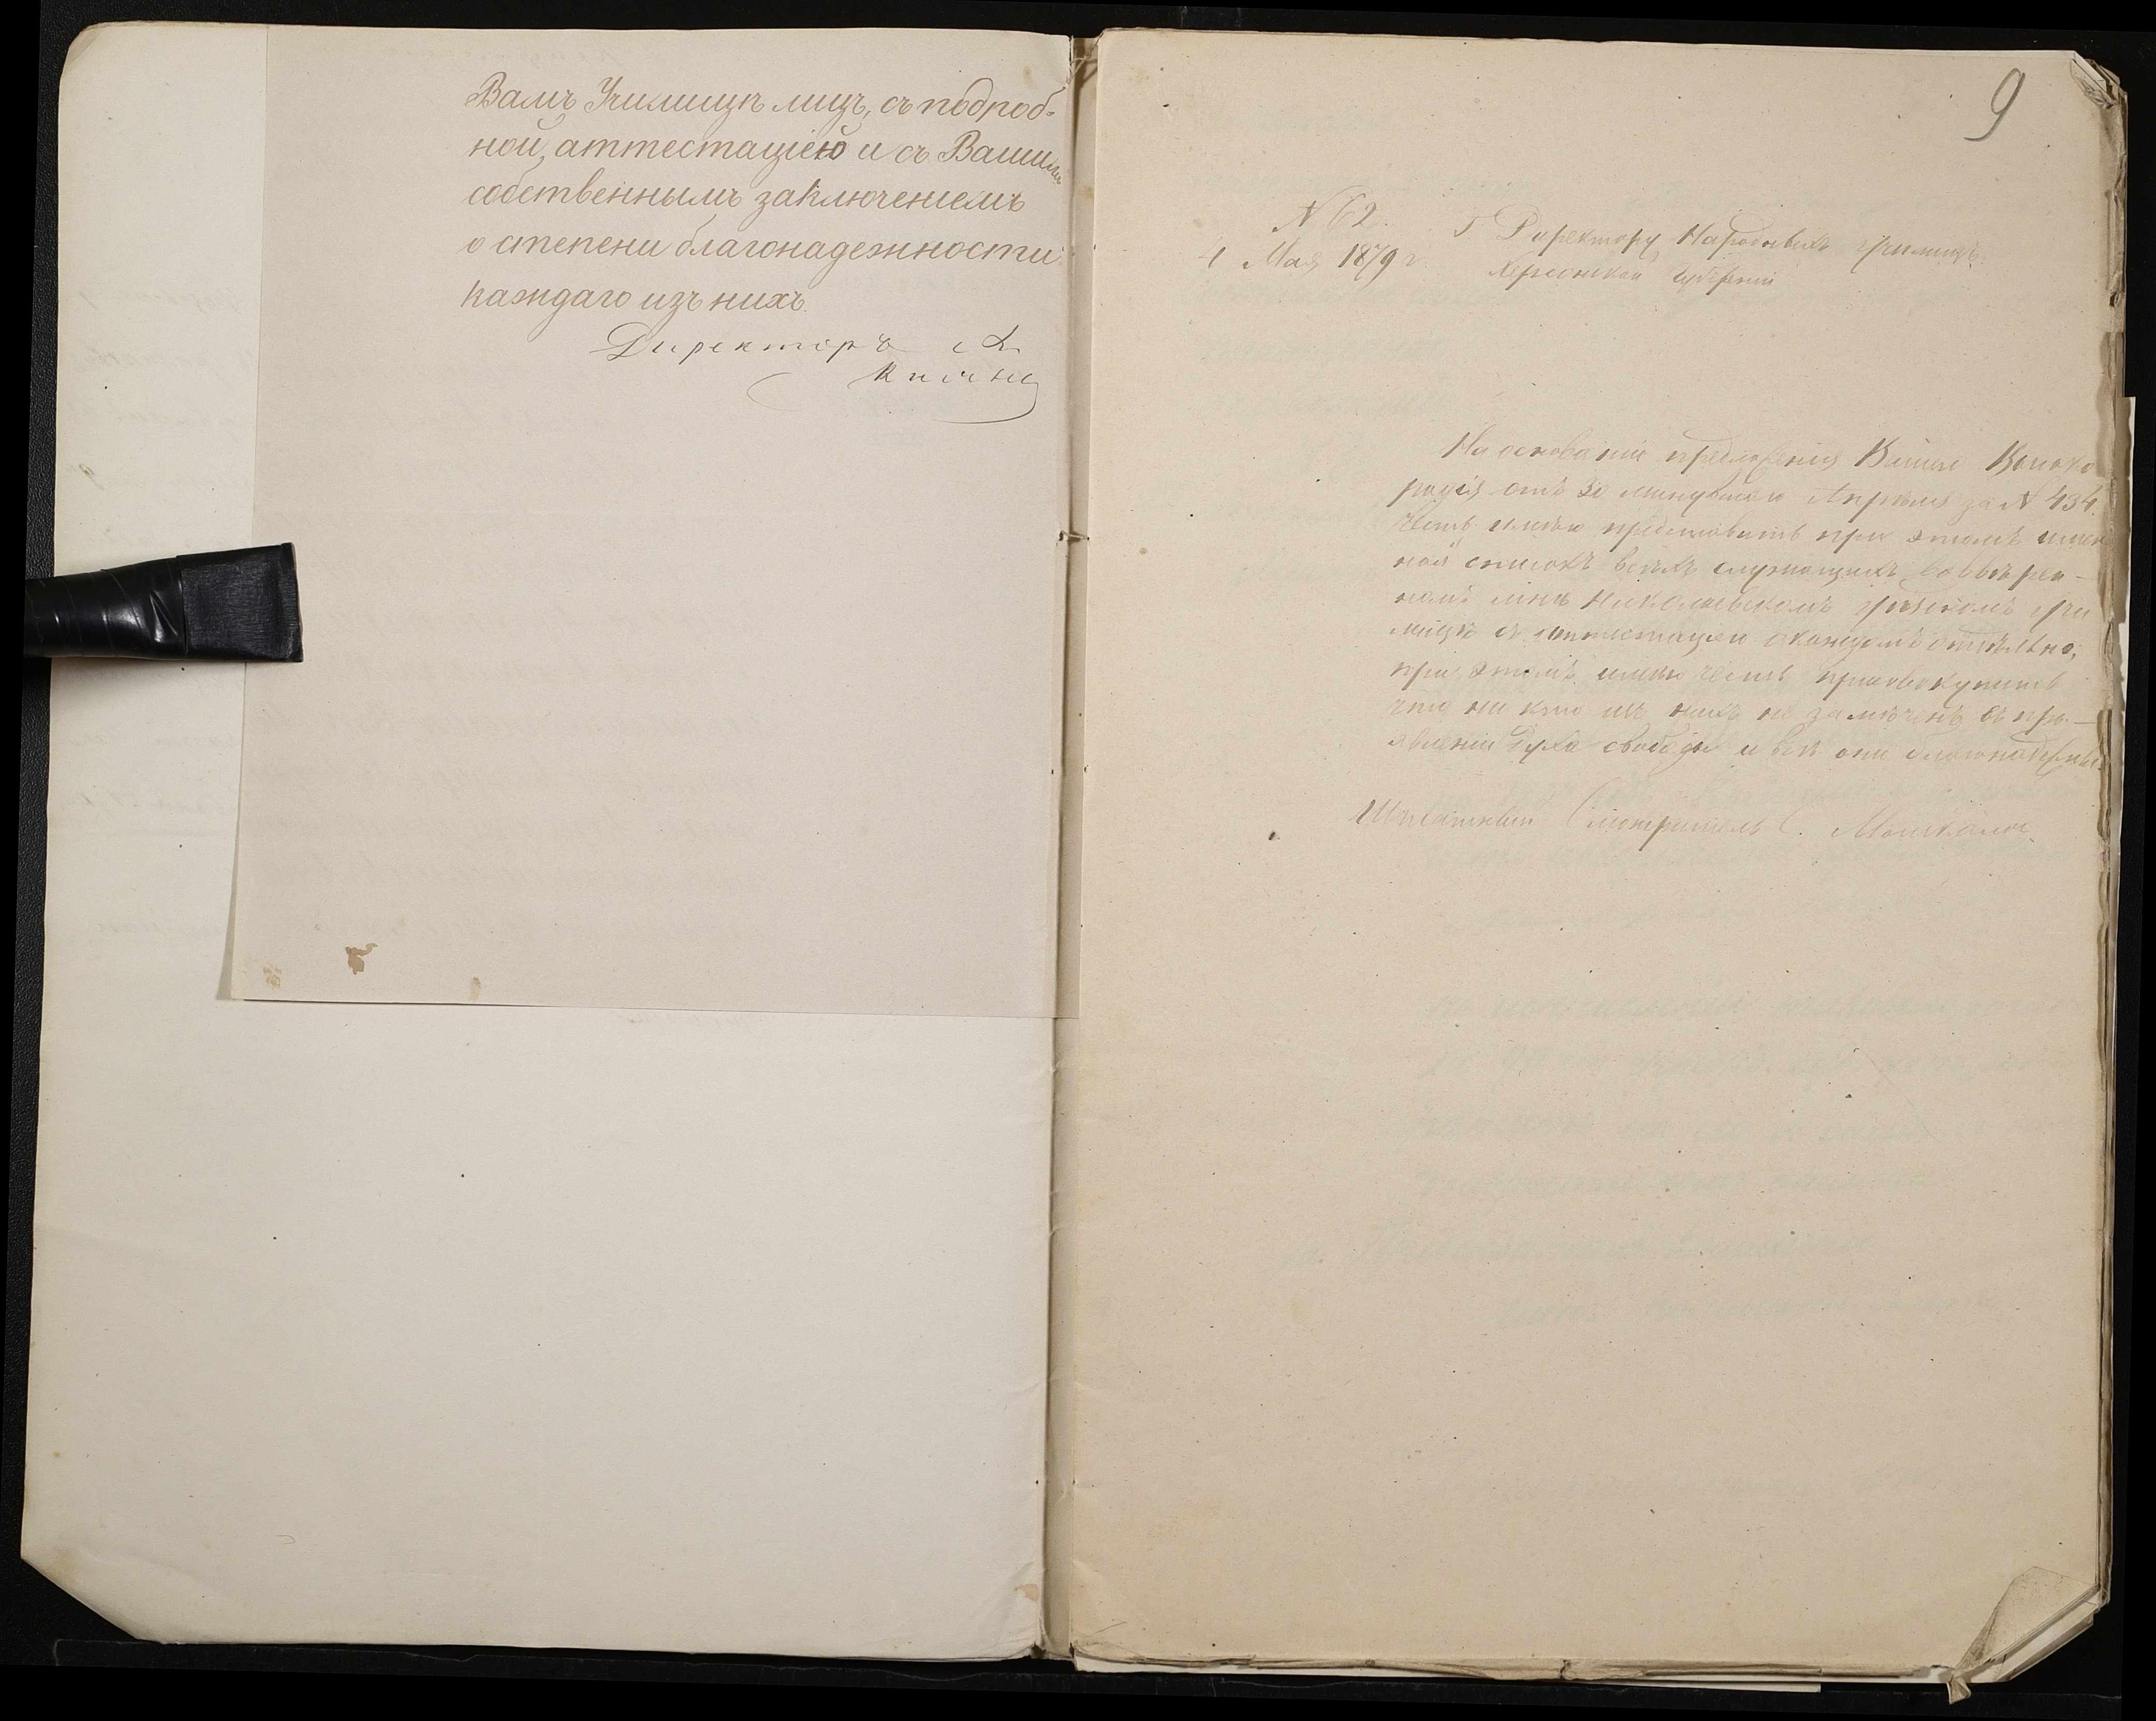 Вамъ Училищѣ лицъ, съ подроб-
ной, аттестаціею и съ Вашимъ
собственнымъ заключеніемъ
о степени благонадежности
каждаго изъ нихъ.
Директоръ
9
N 62.
1 Мая 1879 г.
Г Директору Народныхъ Училищъ
Херсонской Губерніи
На основаніи предложенія Вашего Высоко
родія отъ 30 минувшаго Апрѣля за N 434.
честь имѣю представить при этомъ имен
ной списокъ всѣхъ служащихъ во ввѣрен-
номъ мнѣ Николаевскомъ уѣздномъ учи
лищѣ съ аттестаціею о каждомъ отдѣльно,
при этомъ имѣю честь присовокупить
что ни кто изъ нихъ не замѣченъ въ про-
явленіи духа свободы и всѣ они благонадежны.
Штатный Смотритель С.